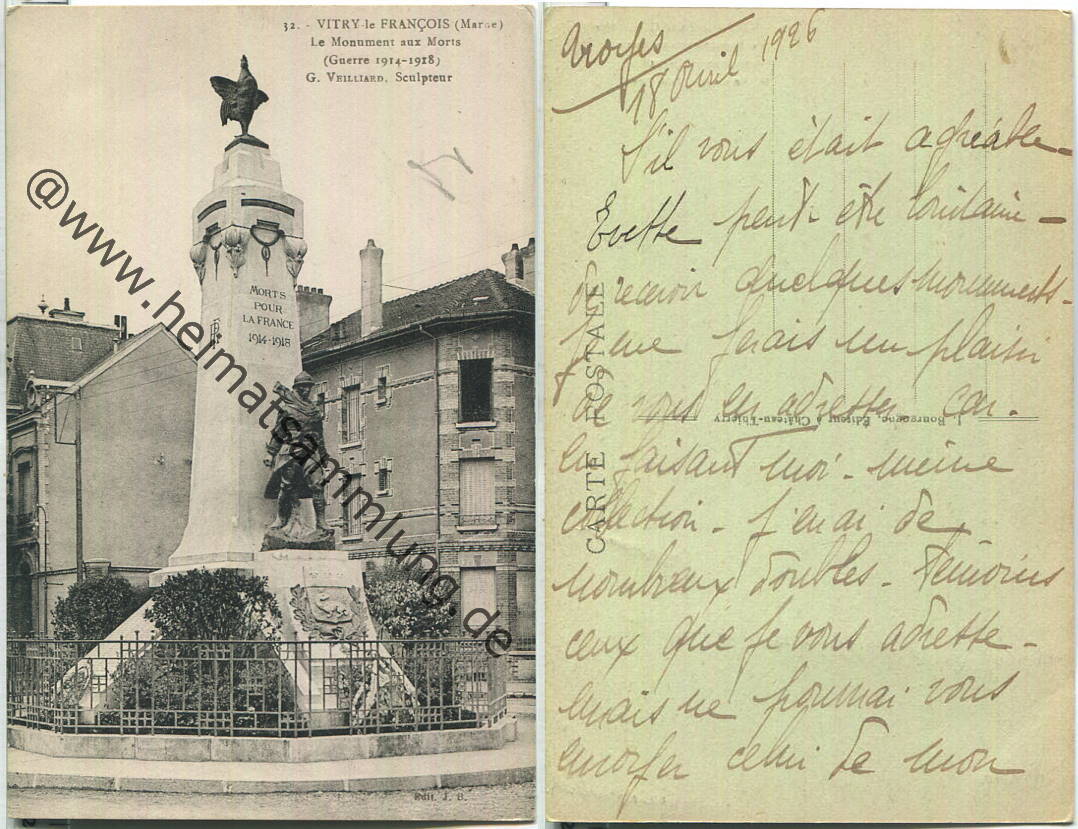 32. - VITRY-le FRANÇOIS (Marne)
Le Monument aux Morts
(Guerre 1914-1918)
G. VEILLIARD, Sculpteur
MORTS
POUR
LA FRANCE
1914-1918
Edit. J. B.
@www.heimatsammlung.de
18 Avril 1926
S'il vous était agréable -
peut-être
recevoir quelques monuments -
je me ferais un plaisir
de vous les adresser - car.
les faisant moi-même
collection - j'en ai de
nombreux doubles - Témoins
ceux que je vous adresse -
mais ne pourrai vous
envoyer celui de mon
CARTE POSTALE
J. Bourgogne, Éditeur à Château-Thierry